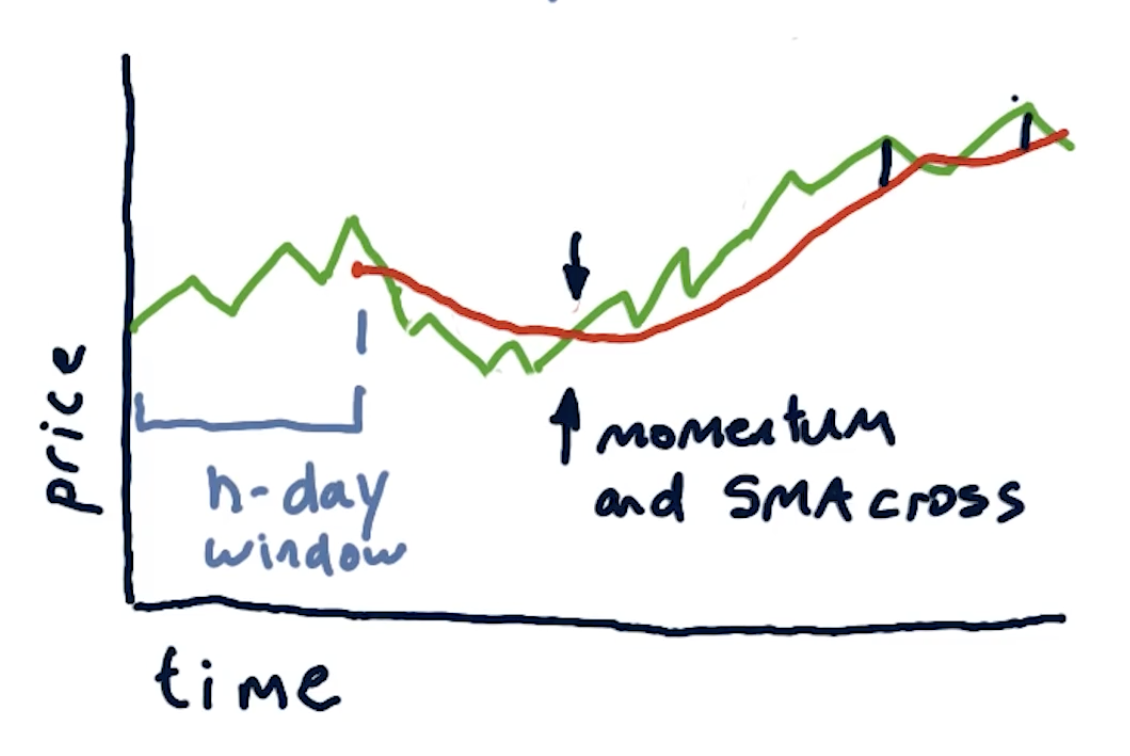 price
n-day
window
momentum
and SMA cross
time